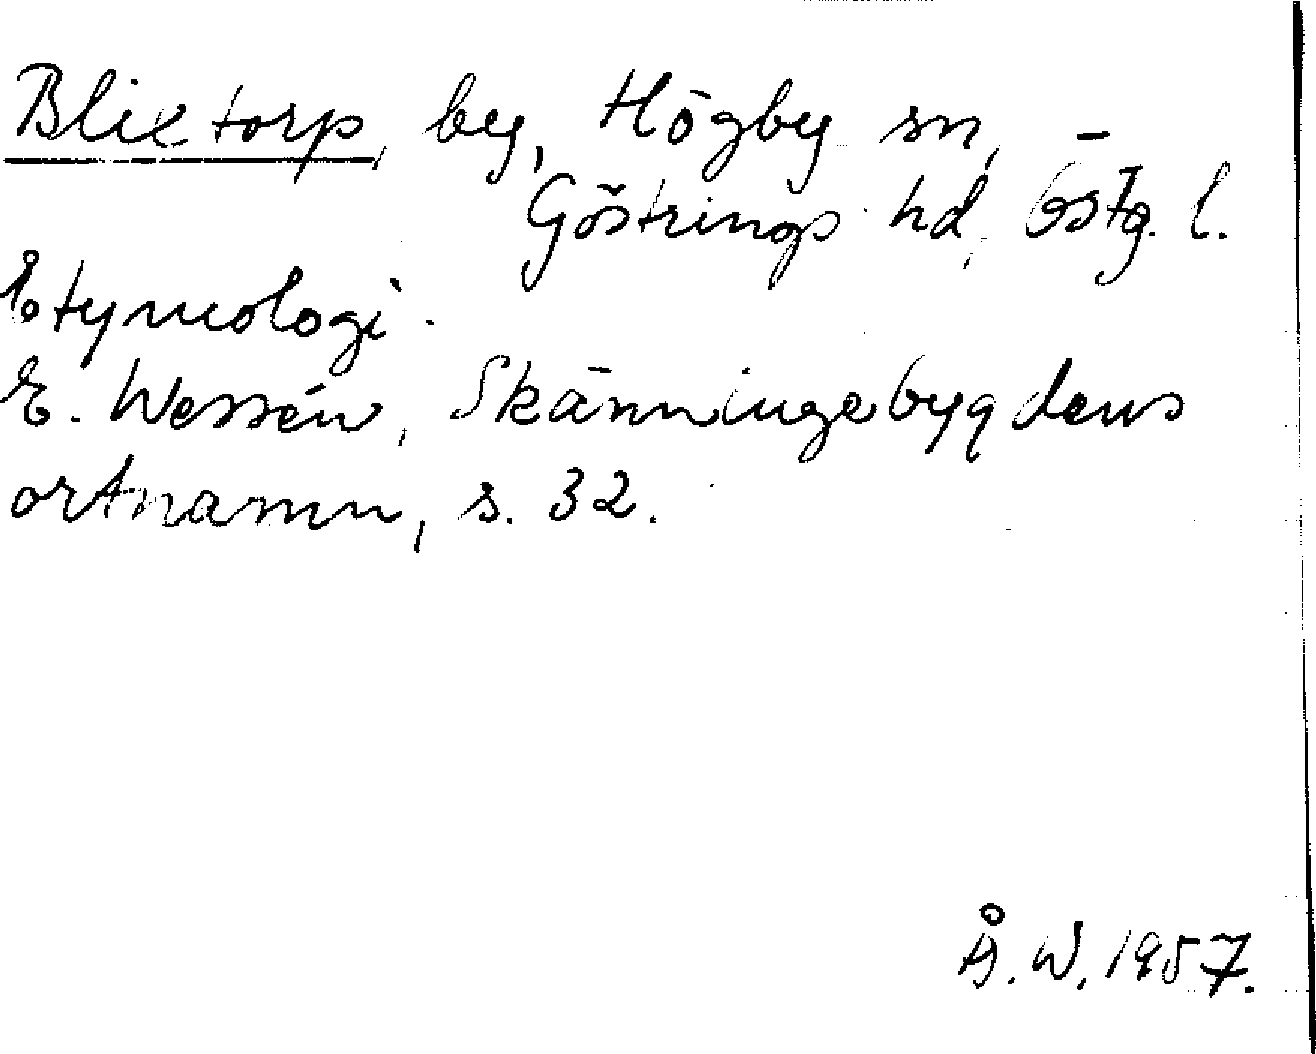 Blixtorp, by, Högby sn,
Göstrings hd, Östg. l.
Etymologi.
E. Wessén, Skänningebygdens
ortnamn, s. 32.
Å. W. 1957.